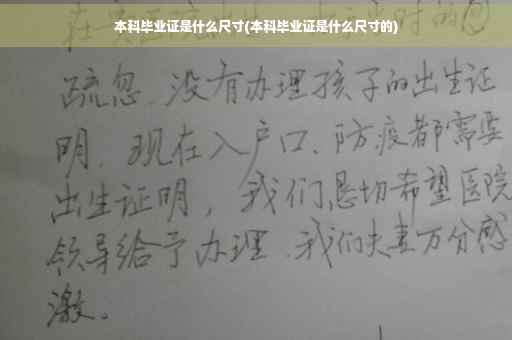 本科毕业证是什么尺寸(本科毕业证是什么尺寸的)
疏忽、没有办理孩子的出生证
明、现在入户口、防疫都需要
出生证明，我们恳切希望医院
领导给予办理、我们夫妻万分感
激。